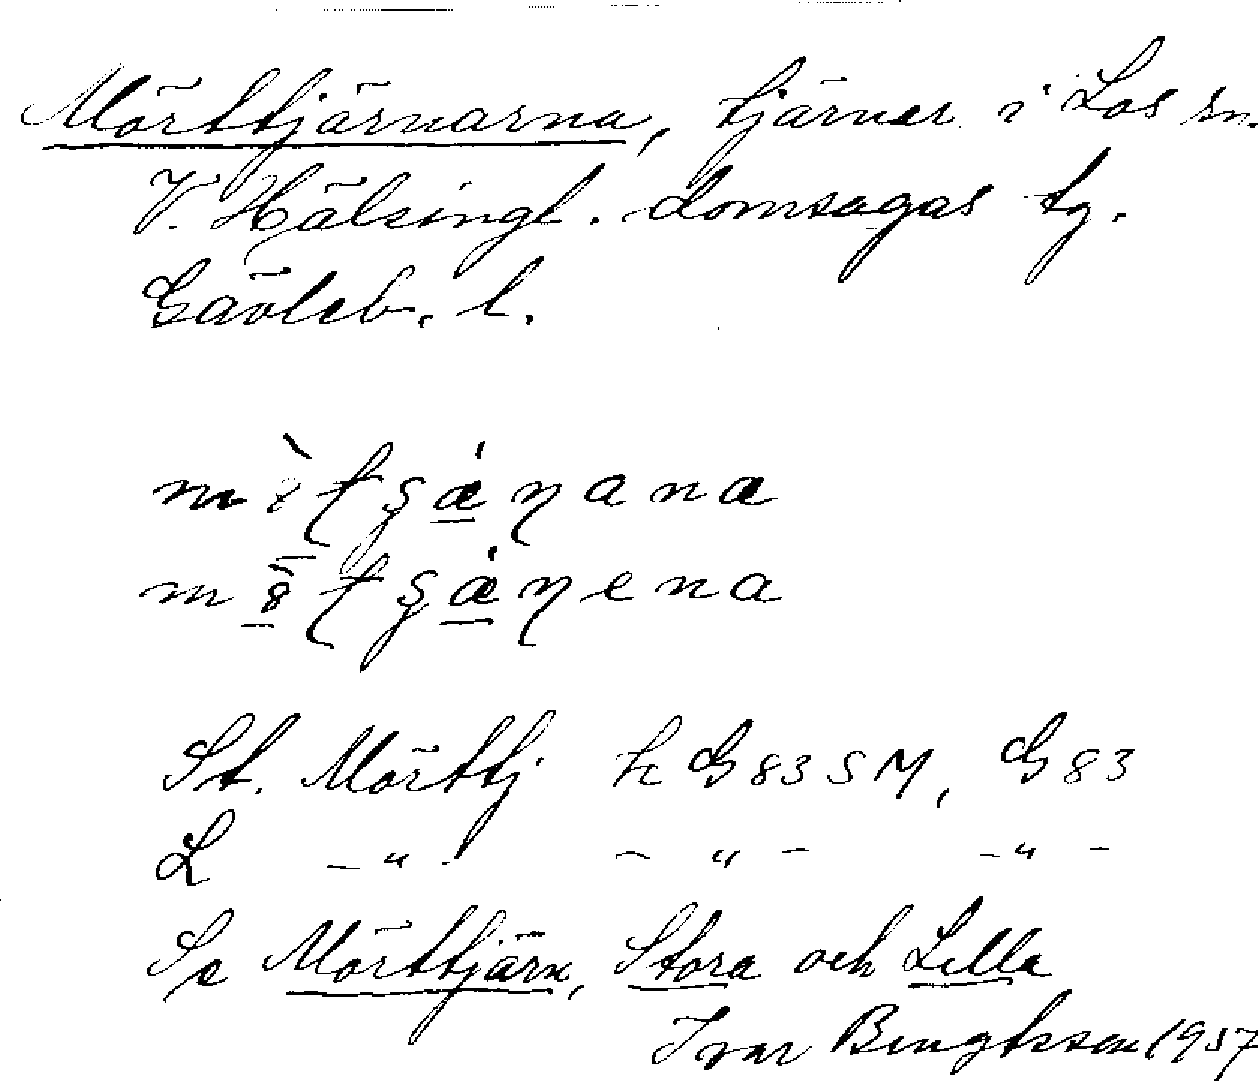 Mörttjärnarna, tjärnar i Los sn.
V. Hälsingl. domsagas tg.
Gävleb. l.
St. Mörttj. k G 83 S M, G 83
L — " — — " — — " —
Se Mörttjärn, Stora och Lilla
Ivar Bengtsson 1957